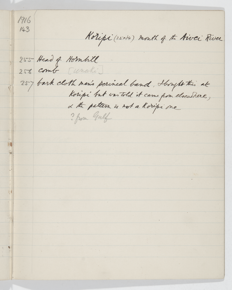 1906
143
Koripi (                ) mouth of the          River
255 Head of Hornbill
256 comb
257 bark cloth men's perineal band. I bought this at
Koripi but was told it came from elsewhere,
& the pattern is not a Koripi one
? from Gulf.